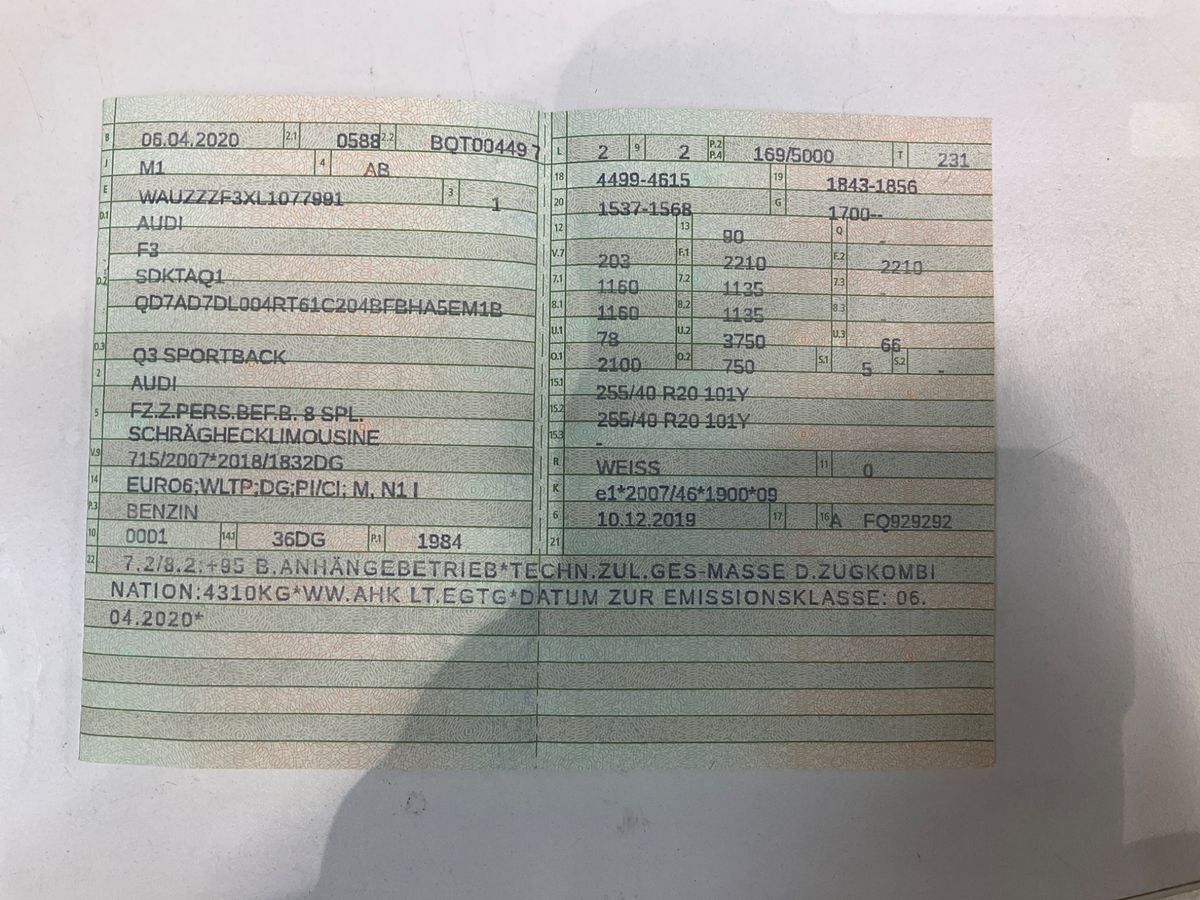 B 06.04.2020 2.1 0588 2.2 BQT00449 7
J M1 4 AB
E WAUZZZF3XL1077991 3 1
D.1 AUDI
F3
D.2 SDKTAQ1
QD7AD7DL004RT61C204BFBHA5EM1B
D.3 Q3 SPORTBACK
2 AUDI
5 FZ.Z.PERS.BEF.B. 8 SPL.
SCHRÄGHECKLIMOUSINE
V.9 715/2007*2018/1832DG
14 EURO6;WLTP;DG;PI/CI; M, N1 I
P.3 BENZIN
10 0001 14.1 36DG P.1 1984
L 2 9 2 P.2 P.4 169/5000 T 231
18 4499-4615 19 1843-1856
20 1537-1568 G 1700--
12 13 90 Q -
V.7 203 F.1 2210 F.2 2210
7.1 1160 7.2 1135 7.3 -
8.1 1160 8.2 1135 8.3 -
U.1 78 U.2 3750 U.3 66
O.1 2100 O.2 750 S.1 5 S.2 -
15.1 255/40 R20 101Y
15.2 255/40 R20 101Y
15.3 -
R WEISS 11 0
K e1*2007/46*1900*09
6 10.12.2019 17 16 A FQ929292
21
22 7.2/8.2:+95 B.ANHÄNGEBETRIEB*TECHN.ZUL.GES-MASSE D.ZUGKOMBI
NATION:4310KG*WW.AHK LT.EGTG*DATUM ZUR EMISSIONSKLASSE: 06.
04.2020*